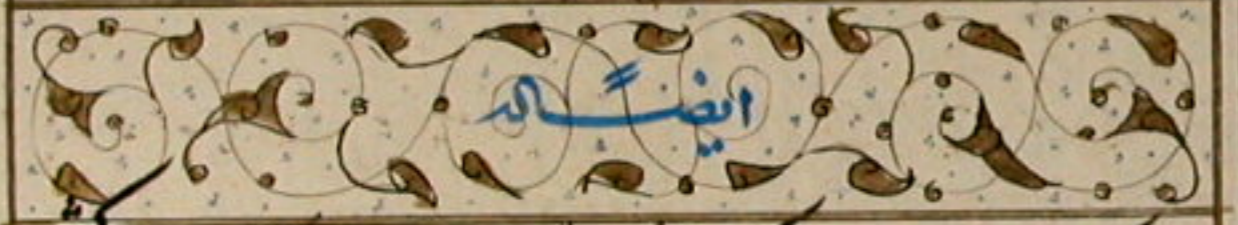 ايضًا له